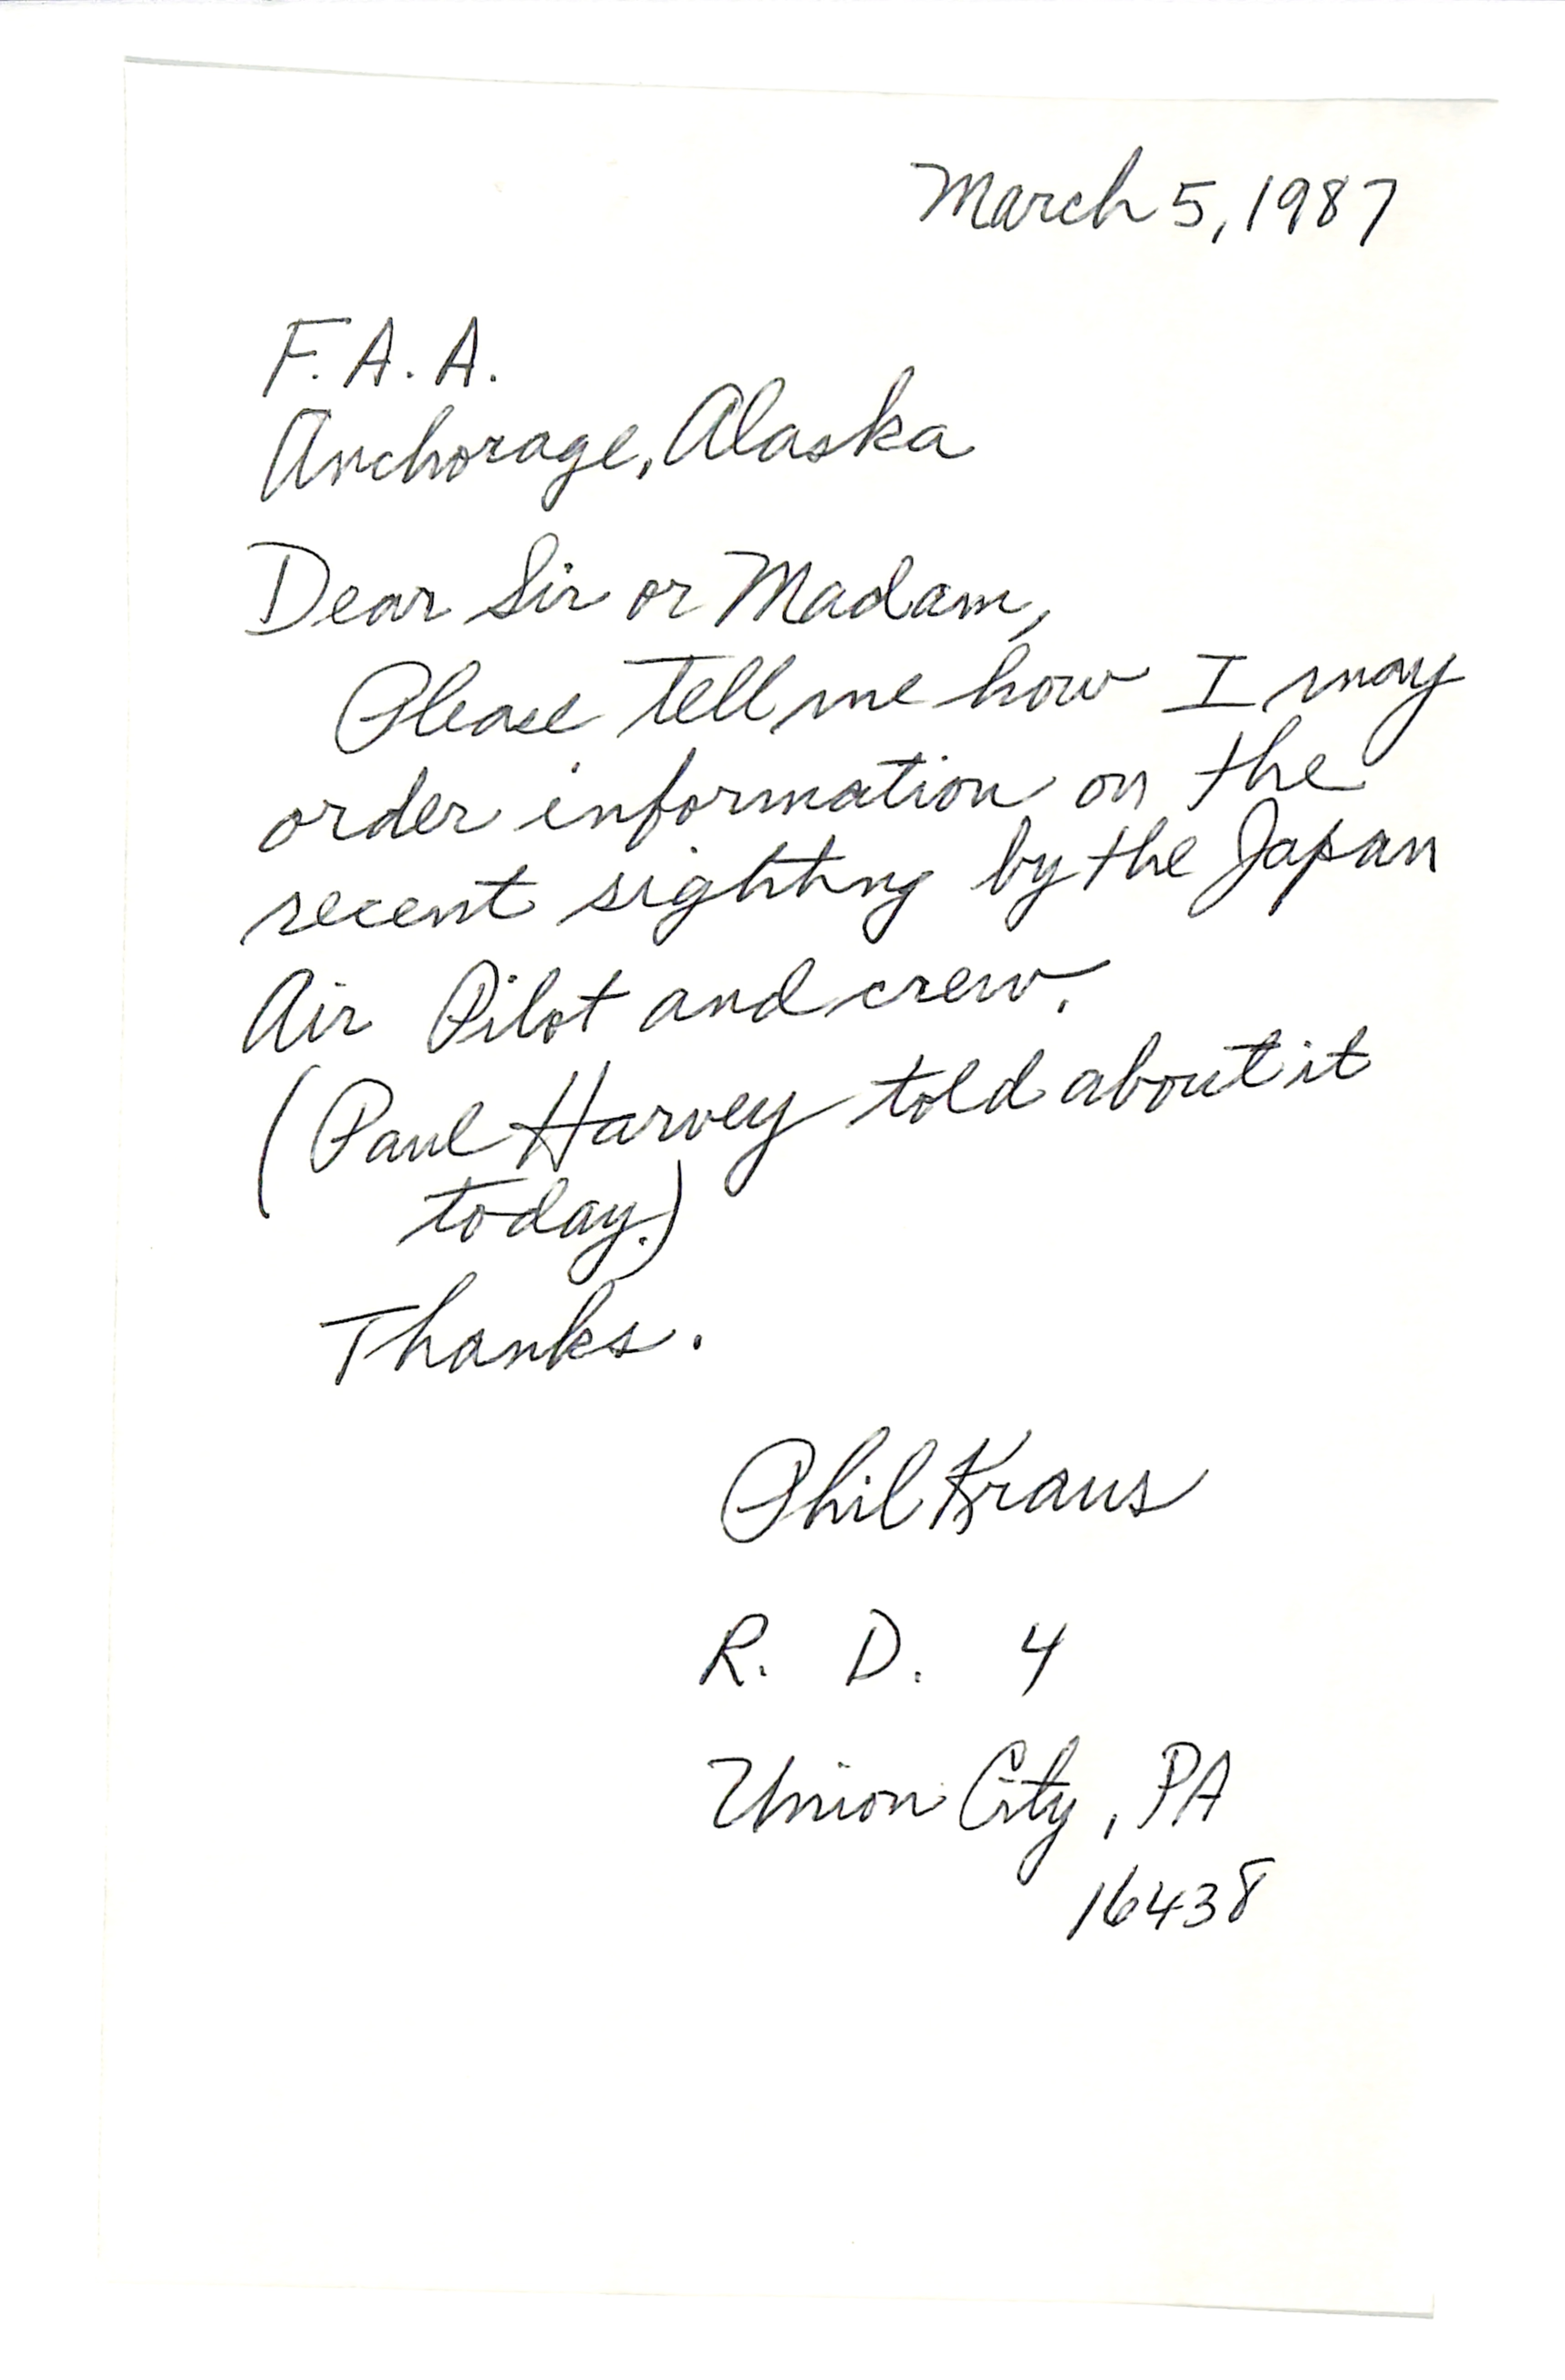 March 5, 1987
F. A. A.
Anchorage, Alaska
Dear Sir or Madam,
Please tell me how I may
order information on the
recent sighting by the Japan
Air Pilot and crew.
(Paul Harvey told about it
today.)
Thanks.
Phil Kraus
R. D. 4
Union City, PA
16438